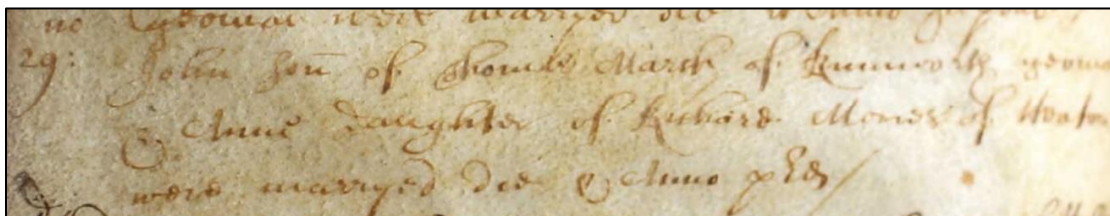 yeoman were marryed die & Anno
29: John son of Thomas March of Kenworth yeoma
& Anne daughter of Richard Mones of
were marryed die & Anno pred